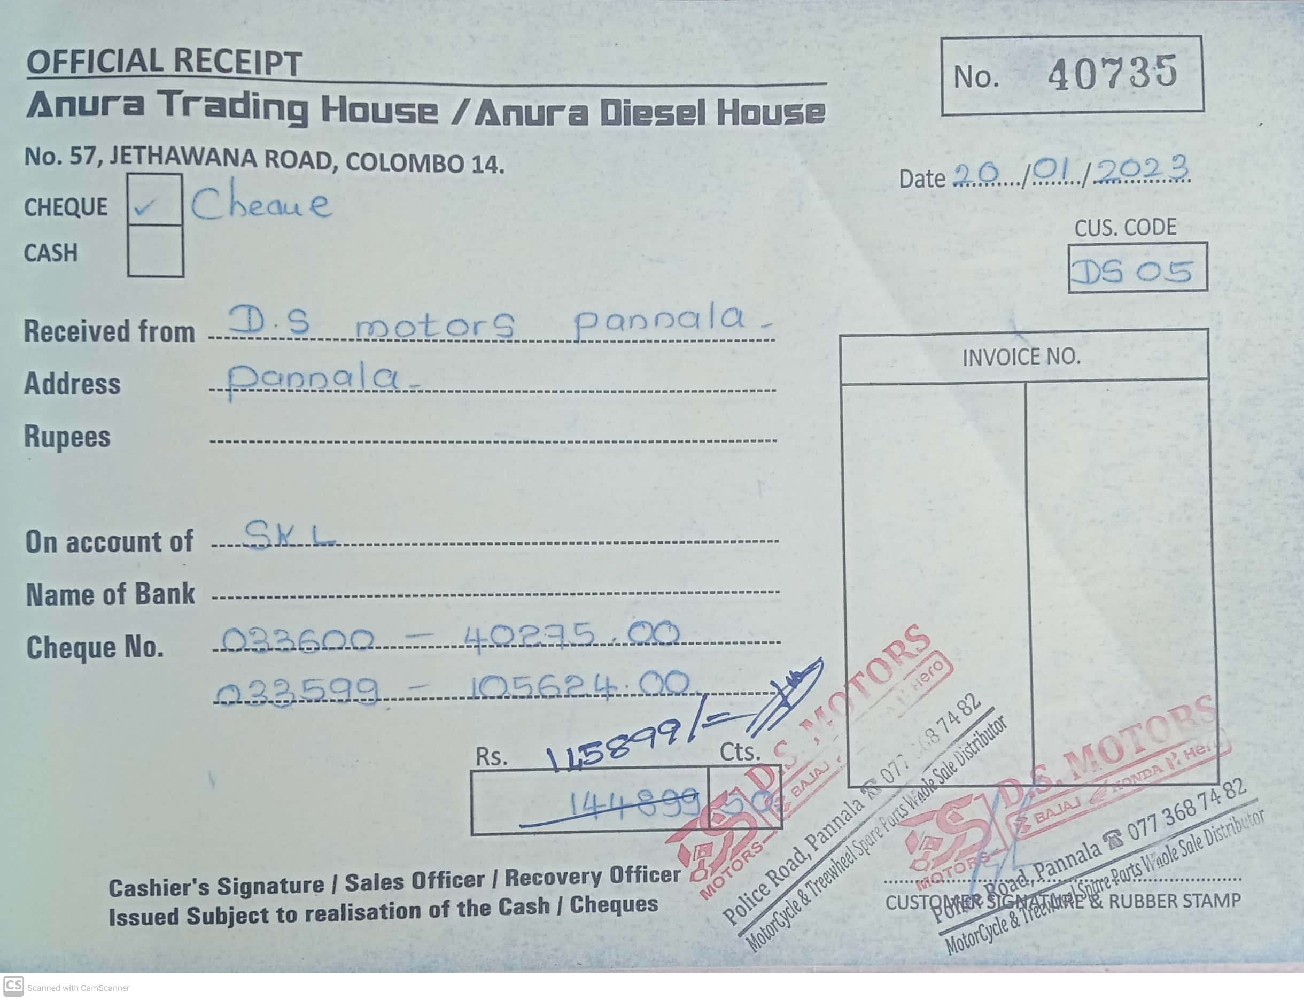 OFFICIAL RECEIPT
Anura Trading House / Anura Diesel House
No. 57, JETHAWANA ROAD, COLOMBO 14.
No. 40735
Date 20/01/2023
CHEQUE ✓ Cheaue
CASH
CUS. CODE
DS 05
Received from D.S motors pannala-
Address pannala-
Rupees
INVOICE NO.
On account of SKL
Name of Bank
Cheque No. 033600 - 40275.00
033599 - 105624.00
145899/=
Rs. Cts.
144899 00
D.S. MOTORS
Hero
BAJAJ
MOTORS
Police Road, Pannala ☎ 077 368 74 82
MotorCycle & Treewheel Spare Parts Whole Sale Distributor
D.S. MOTORS
BAJAJ HONDA Hero
MOTORS
Police Road, Pannala ☎ 077 368 74 82
MotorCycle & Treewheel Spare Parts Whole Sale Distributor
Cashier's Signature / Sales Officer / Recovery Officer
Issued Subject to realisation of the Cash / Cheques
CUSTOMER SIGNATURE & RUBBER STAMP
CS Scanned with CamScanner